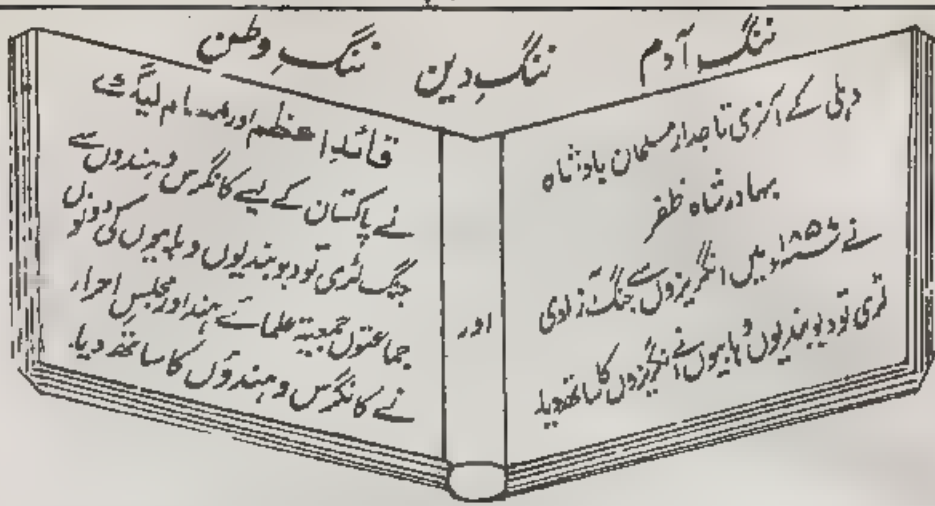 ننگِ آدم ننگِ دین ننگِ وطن
دہلی کے آخری تاجدار مسلمان بادشاہ
بہادر شاہ ظفر
نے ۱۸۵۷ء میں انگریزوں سے جنگ آزادی
لڑی تو دیوبندیوں وہابیوں نے انگریزوں کا ساتھ دیا۔
اور
قائد اعظم اور مسلم لیگ
نے پاکستان کے لیے کانگرس و ہندوں سے
جنگ لڑی تو دیوبندیوں وہابیوں کی دونوں
جماعتوں جمعیۃ علمائے ہند اور مجلس احرار
نے کانگرس و ہندوؤں کا ساتھ دیا۔